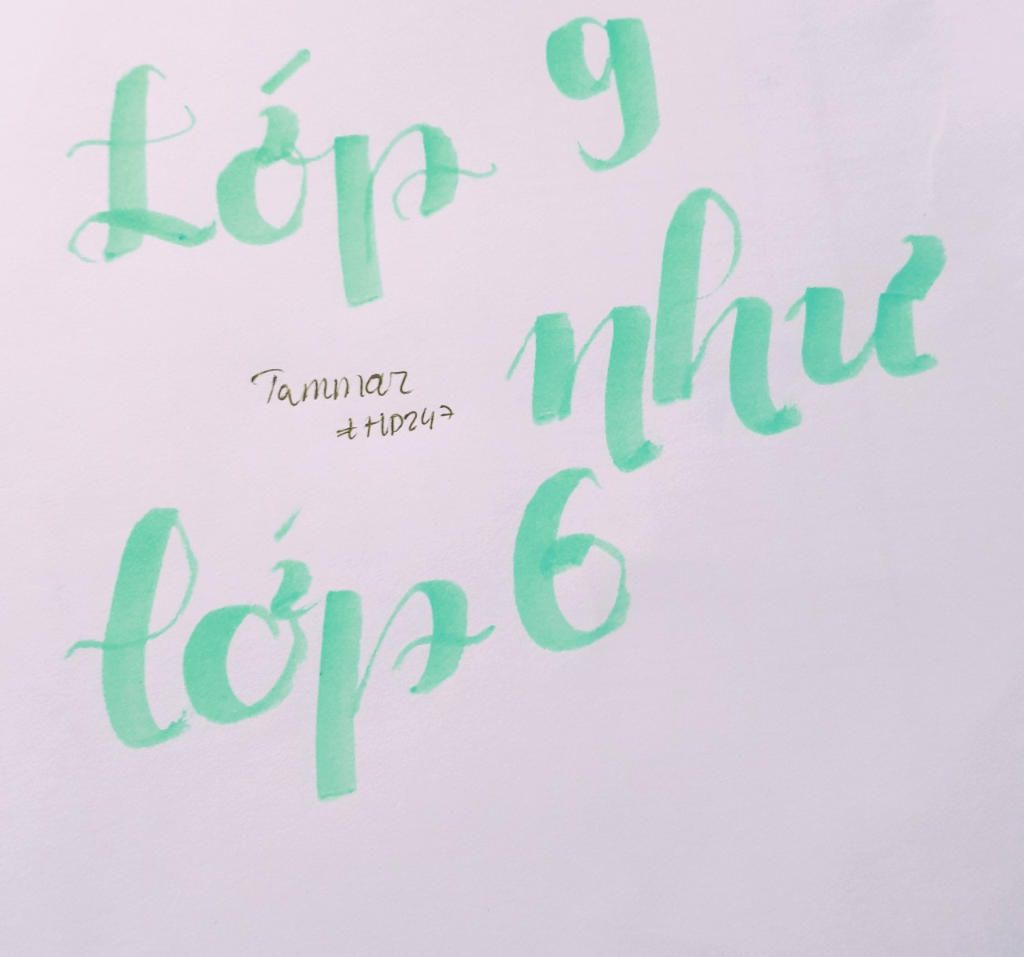 Lớp 9
như
Tammar
#HD247
lớp 6